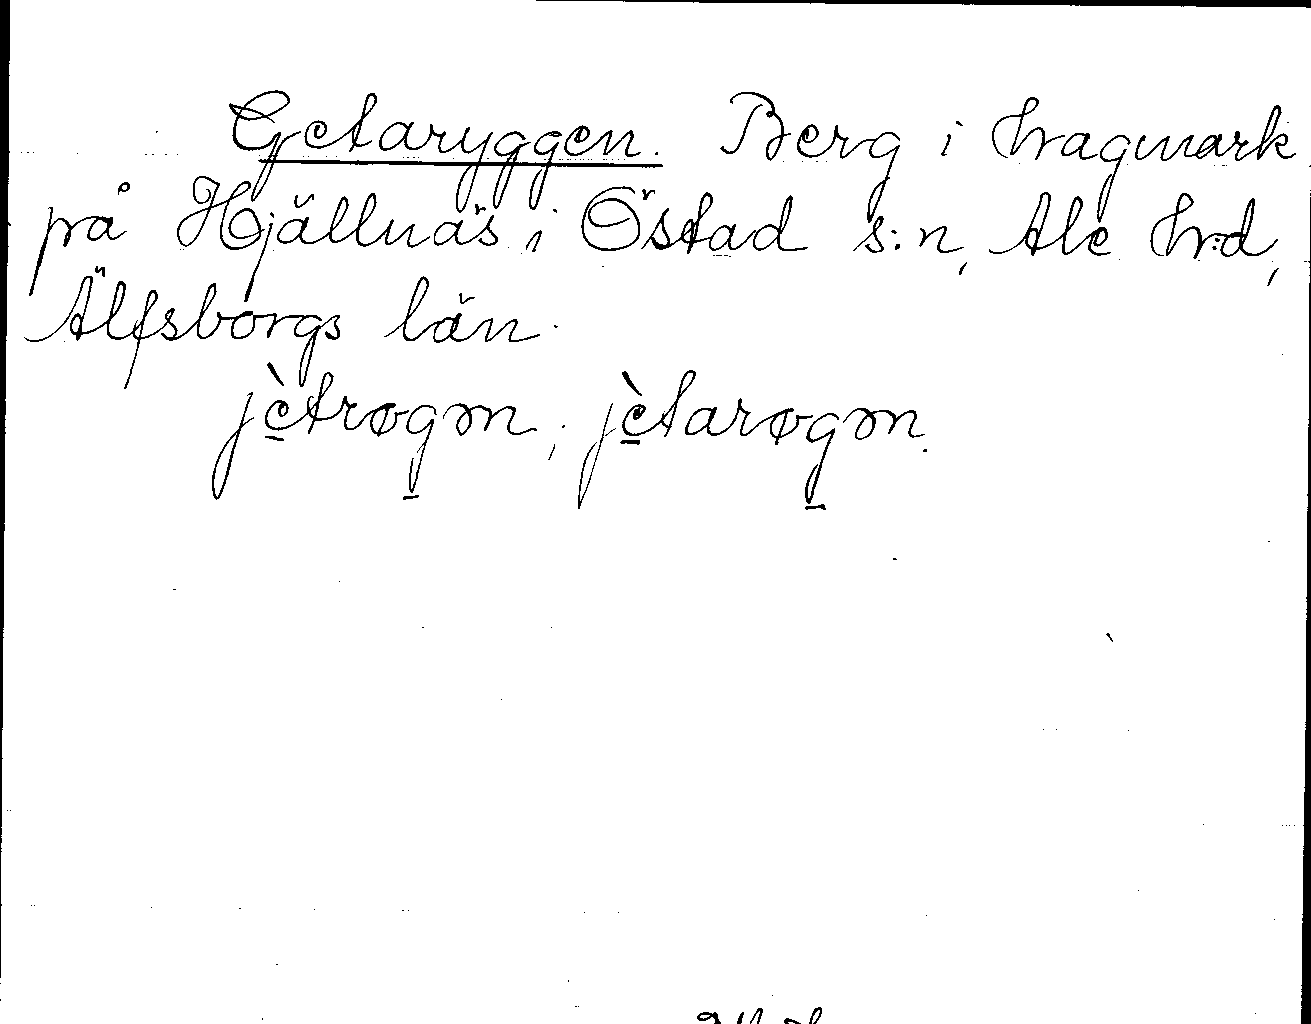 Getaryggen. Berg i hagmark
på Hjällnäs i Östad s:n, Ale h:d,
Älfsborgs län.
jètrøgən, jètarøgən.